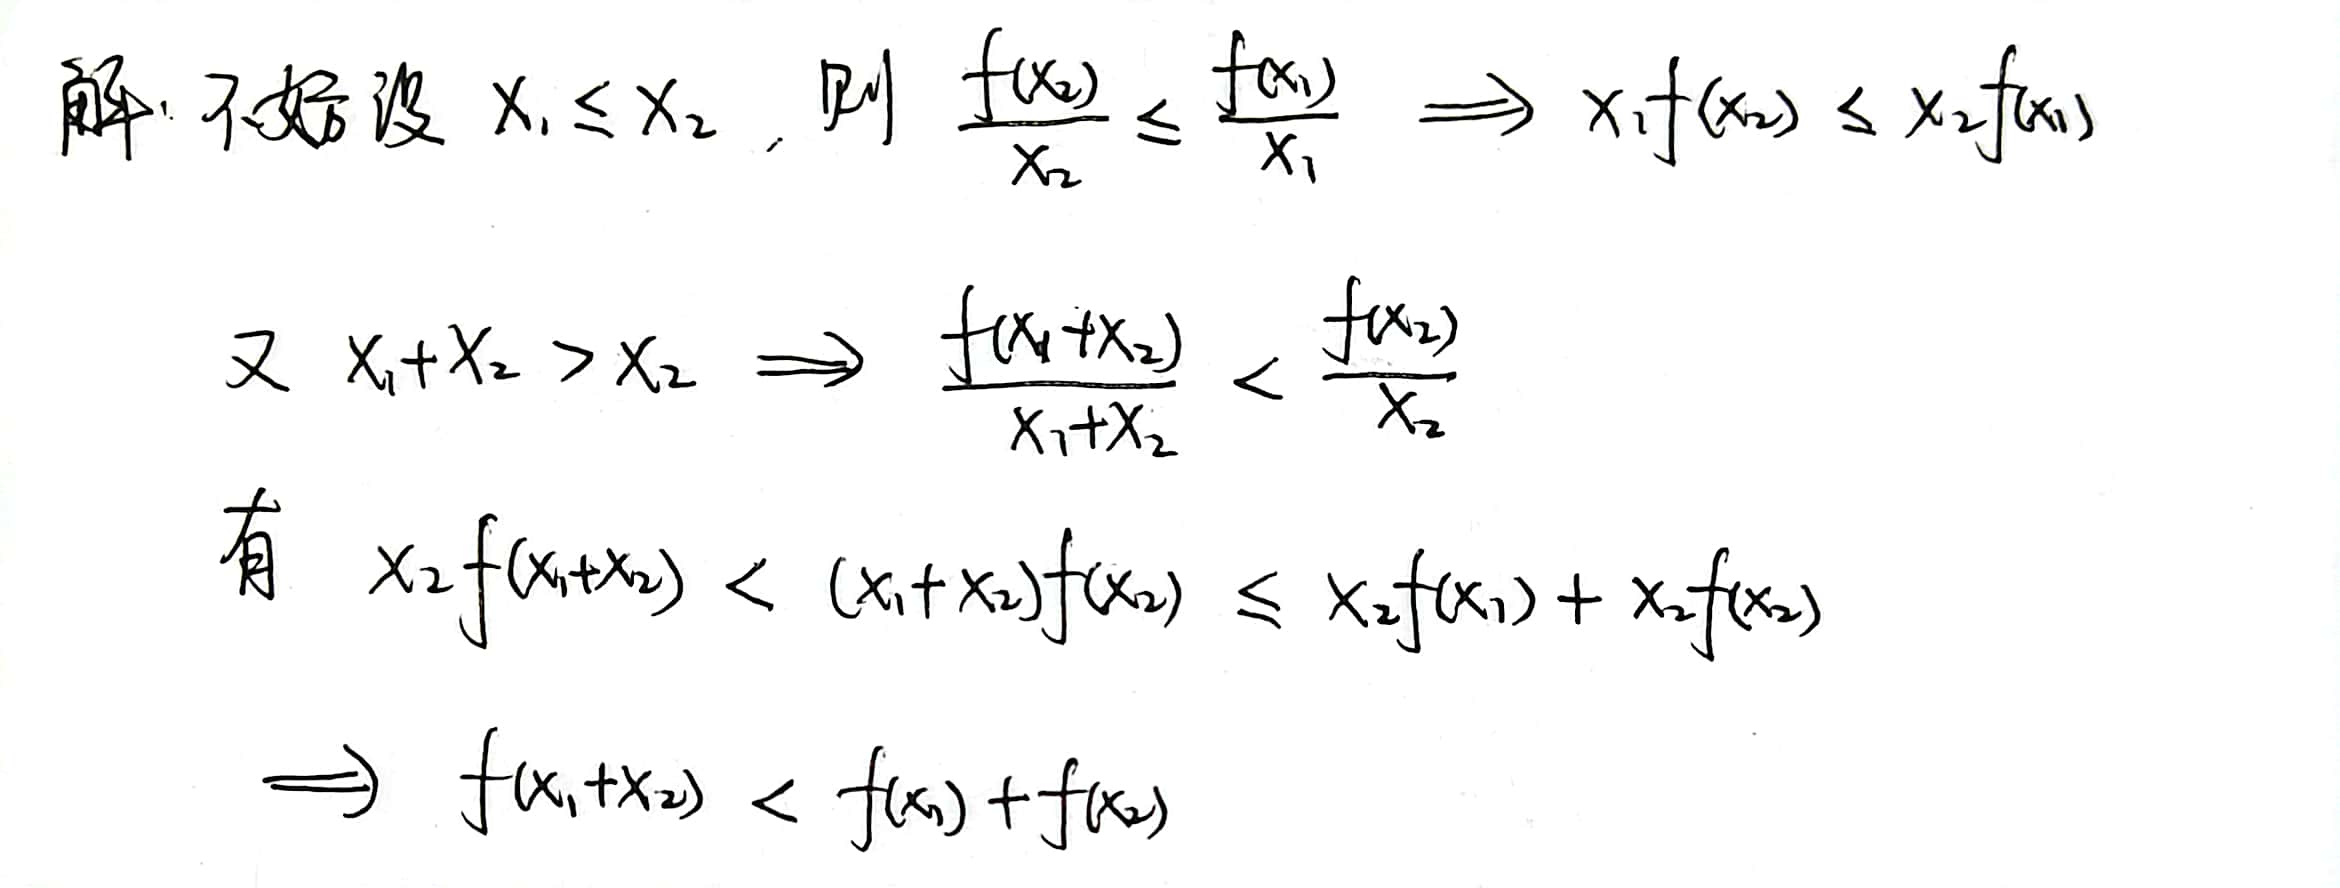 解:不妨设 x₁ ≤ x₂ , 则 f(x₂)/x₂ ≤ f(x₁)/x₁ ⟹ x₁f(x₂) ≤ x₂f(x₁)
又 x₁+x₂ > x₂ ⟹ f(x₁+x₂)/(x₁+x₂) < f(x₂)/x₂
有 x₂f(x₁+x₂) < (x₁+x₂)f(x₂) ≤ x₂f(x₁) + x₂f(x₂)
⟹ f(x₁+x₂) < f(x₁) + f(x₂)